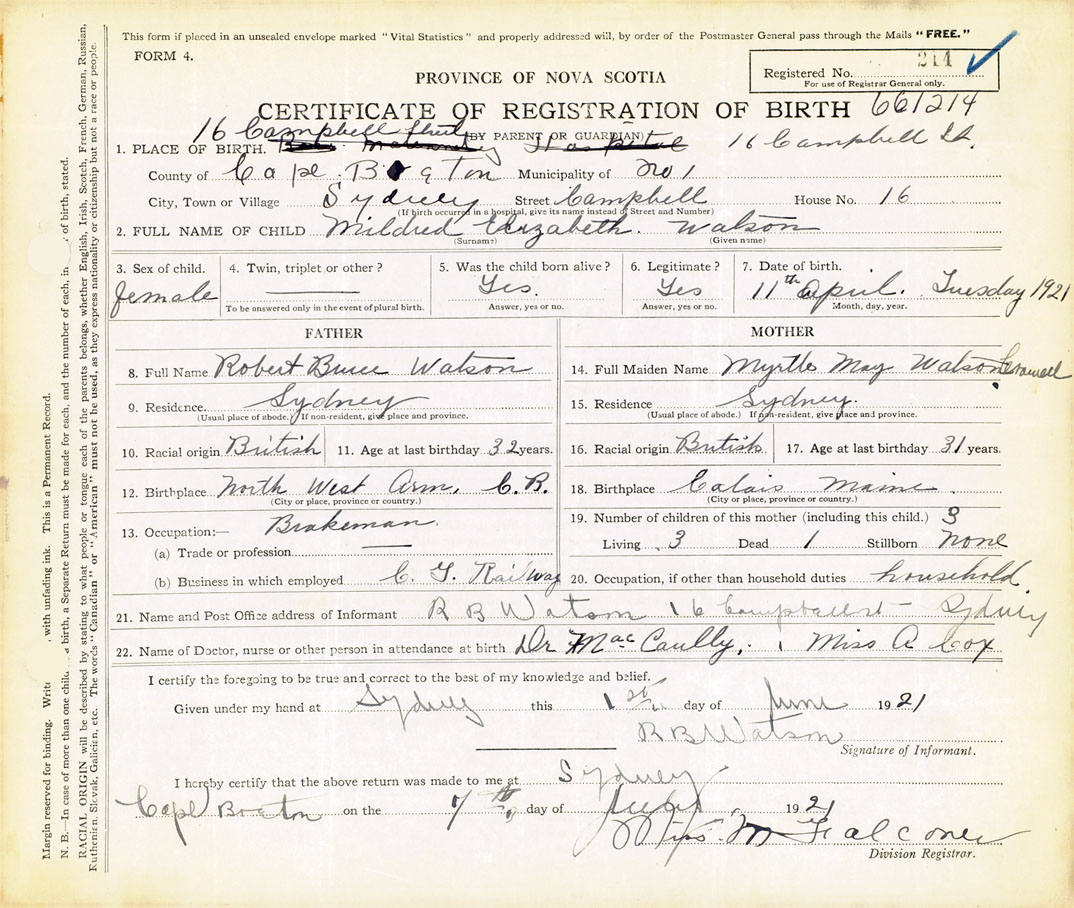 This form if placed in an unsealed envelope marked "Vital Statistics" and properly addressed will, by order of the Postmaster General pass through the Mails "FREE."
FORM 4.
214
Registered No.
For use of Registrar General only.
PROVINCE OF NOVA SCOTIA
CERTIFICATE OF REGISTRATION OF BIRTH 661214
(BY PARENT OR GUARDIAN)
16 Campbell Street
1. PLACE OF BIRTH. Maternity Hospital 16 Campbell St.
County of Cape Breton Municipality of No 1
City, Town or Village Sydney Street Campbell House No. 16
(If birth occurred in a hospital, give its name instead of Street and Number)
2. FULL NAME OF CHILD Mildred Elizabeth. Watson
(Surname) (Given name)
3. Sex of child. 4. Twin, triplet or other? 5. Was the child born alive? 6. Legitimate? 7. Date of birth.
female Yes. Yes 11th April. Tuesday 1921
To be answered only in the event of plural birth. Answer, yes or no. Answer, yes or no. Month, day, year.
FATHER
8. Full Name Robert Bruce Watson
9. Residence. Sydney
(Usual place of abode.) If non-resident, give place and province.
10. Racial origin British 11. Age at last birthday 32 years.
12. Birthplace North West Arm, C.B.
(City or place, province or country.)
13. Occupation:— Brakeman.
(a) Trade or profession
(b) Business in which employed C. G. Railway
MOTHER
14. Full Maiden Name Myrtle May Watson
15. Residence Sydney.
(Usual place of abode.) If non-resident, give place and province.
16. Racial origin British 17. Age at last birthday 31 years.
18. Birthplace Calais Maine.
(City or place, province or country.)
19. Number of children of this mother (including this child.) 3
Living 3 Dead 1 Stillborn none
20. Occupation, if other than household duties household.
21. Name and Post Office address of Informant R B Watson 16 Campbell st - Sydney
22. Name of Doctor, nurse or other person in attendance at birth Dr MacCaully, Miss A Cox
I certify the foregoing to be true and correct to the best of my knowledge and belief.
Given under my hand at Sydney this 1st day of June 1921
R B Watson
Signature of Informant.
I hereby certify that the above return was made to me at Sydney
Cape Breton on the 7th day of 1921
M Falconer
Division Registrar.
Margin reserved for binding. with unfading ink. This is a Permanent Record.
N. B.—In case of more than one birth, a Separate Return must be made for each, and the number of each, in of birth, stated.
RACIAL ORIGIN will be described by stating to what people or tongue each of the parents belongs, whether English, Irish, Scotch, French, German, Russian,
Ruthenian, Slovak, Galician, etc. The words "Canadian" or "American" must not be used, as they express nationality or citizenship but not a race or people.